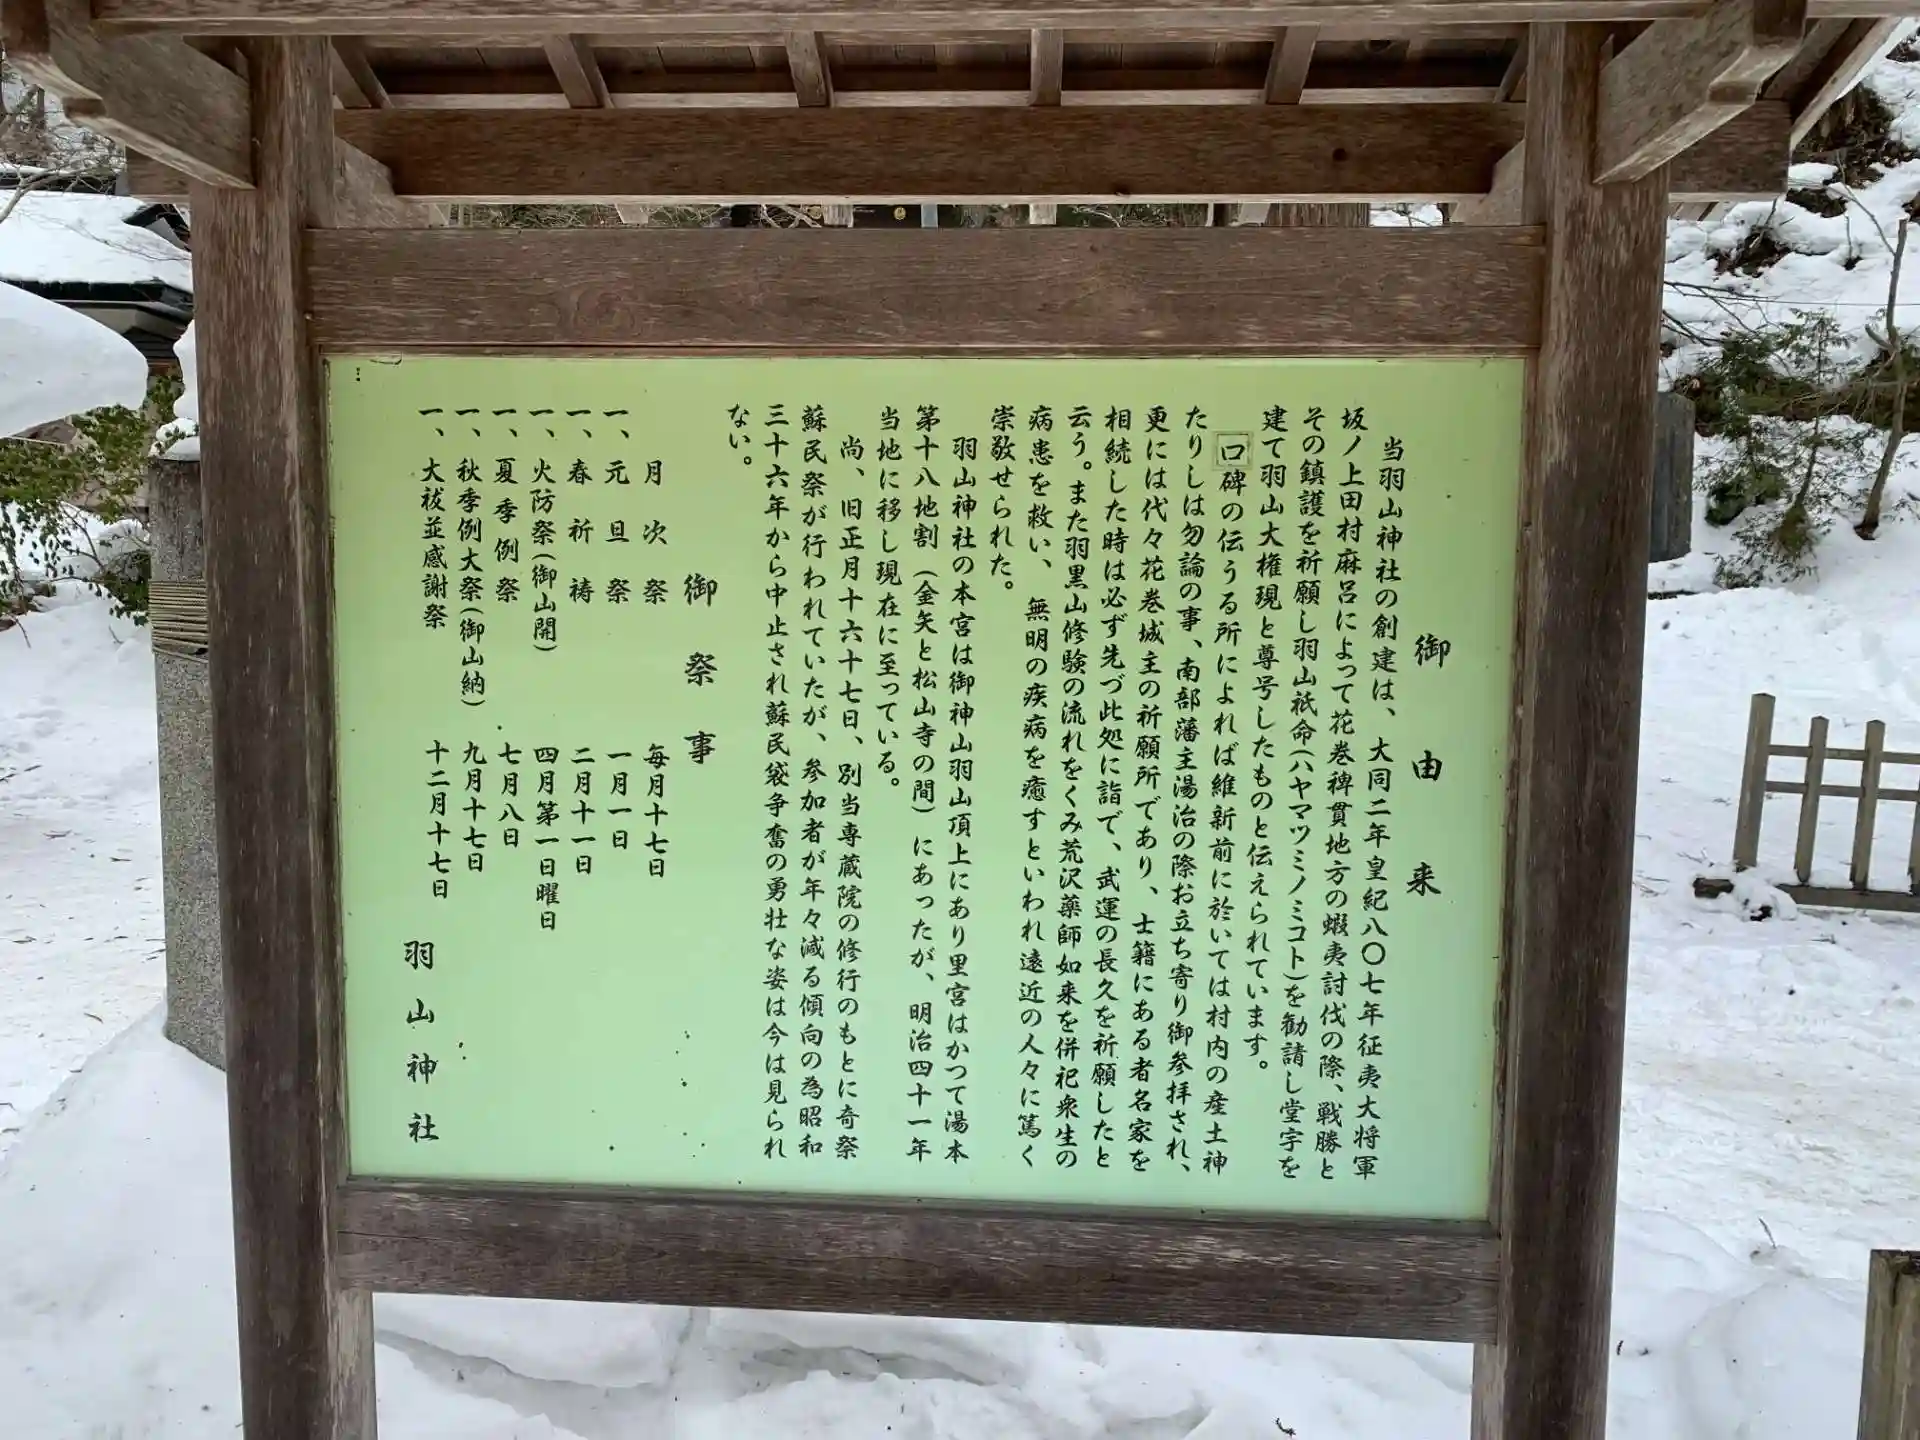 御由来
当羽山神社の創建は、大同二年皇紀八〇七年征夷大将軍
坂ノ上田村麻呂によって花巻稗貫地方の蝦夷討伐の際、戦勝と
その鎮護を祈願し羽山祇命(ハヤマツミノミコト)を勧請し堂宇を
建て羽山大権現と尊号したものと伝えられています。
口碑の伝うる所によれば維新前に於いては村内の産土神
たりしは勿論の事、南部藩主湯治の際お立ち寄り御参拝され、
更には代々花巻城主の祈願所であり、士籍にある者名家を
相続した時は必ず先づ此処に詣で、武運の長久を祈願したと
云う。また羽黒山修験の流れをくみ荒沢薬師如来を併祀衆生の
病患を救い、無明の疾病を癒すといわれ遠近の人々に篤く
崇敬せられた。
羽山神社の本宮は御神山羽山頂上にあり里宮はかつて湯本
第十八地割(金矢と松山寺の間)にあったが、明治四十一年
当地に移し現在に至っている。
尚、旧正月十六十七日、別当専蔵院の修行のもとに奇祭
蘇民祭が行われていたが、参加者が年々減る傾向の為昭和
三十六年から中止され蘇民袋争奪の勇壮な姿は今は見られ
ない。
御祭事
月次祭 毎月十七日
一、元旦祭 一月一日
一、春祈祷 二月十一日
一、火防祭(御山開) 四月第一日曜日
一、夏季例祭 七月八日
一、秋季例大祭(御山納) 九月十七日
一、大祓並感謝祭 十二月十七日
羽山神社